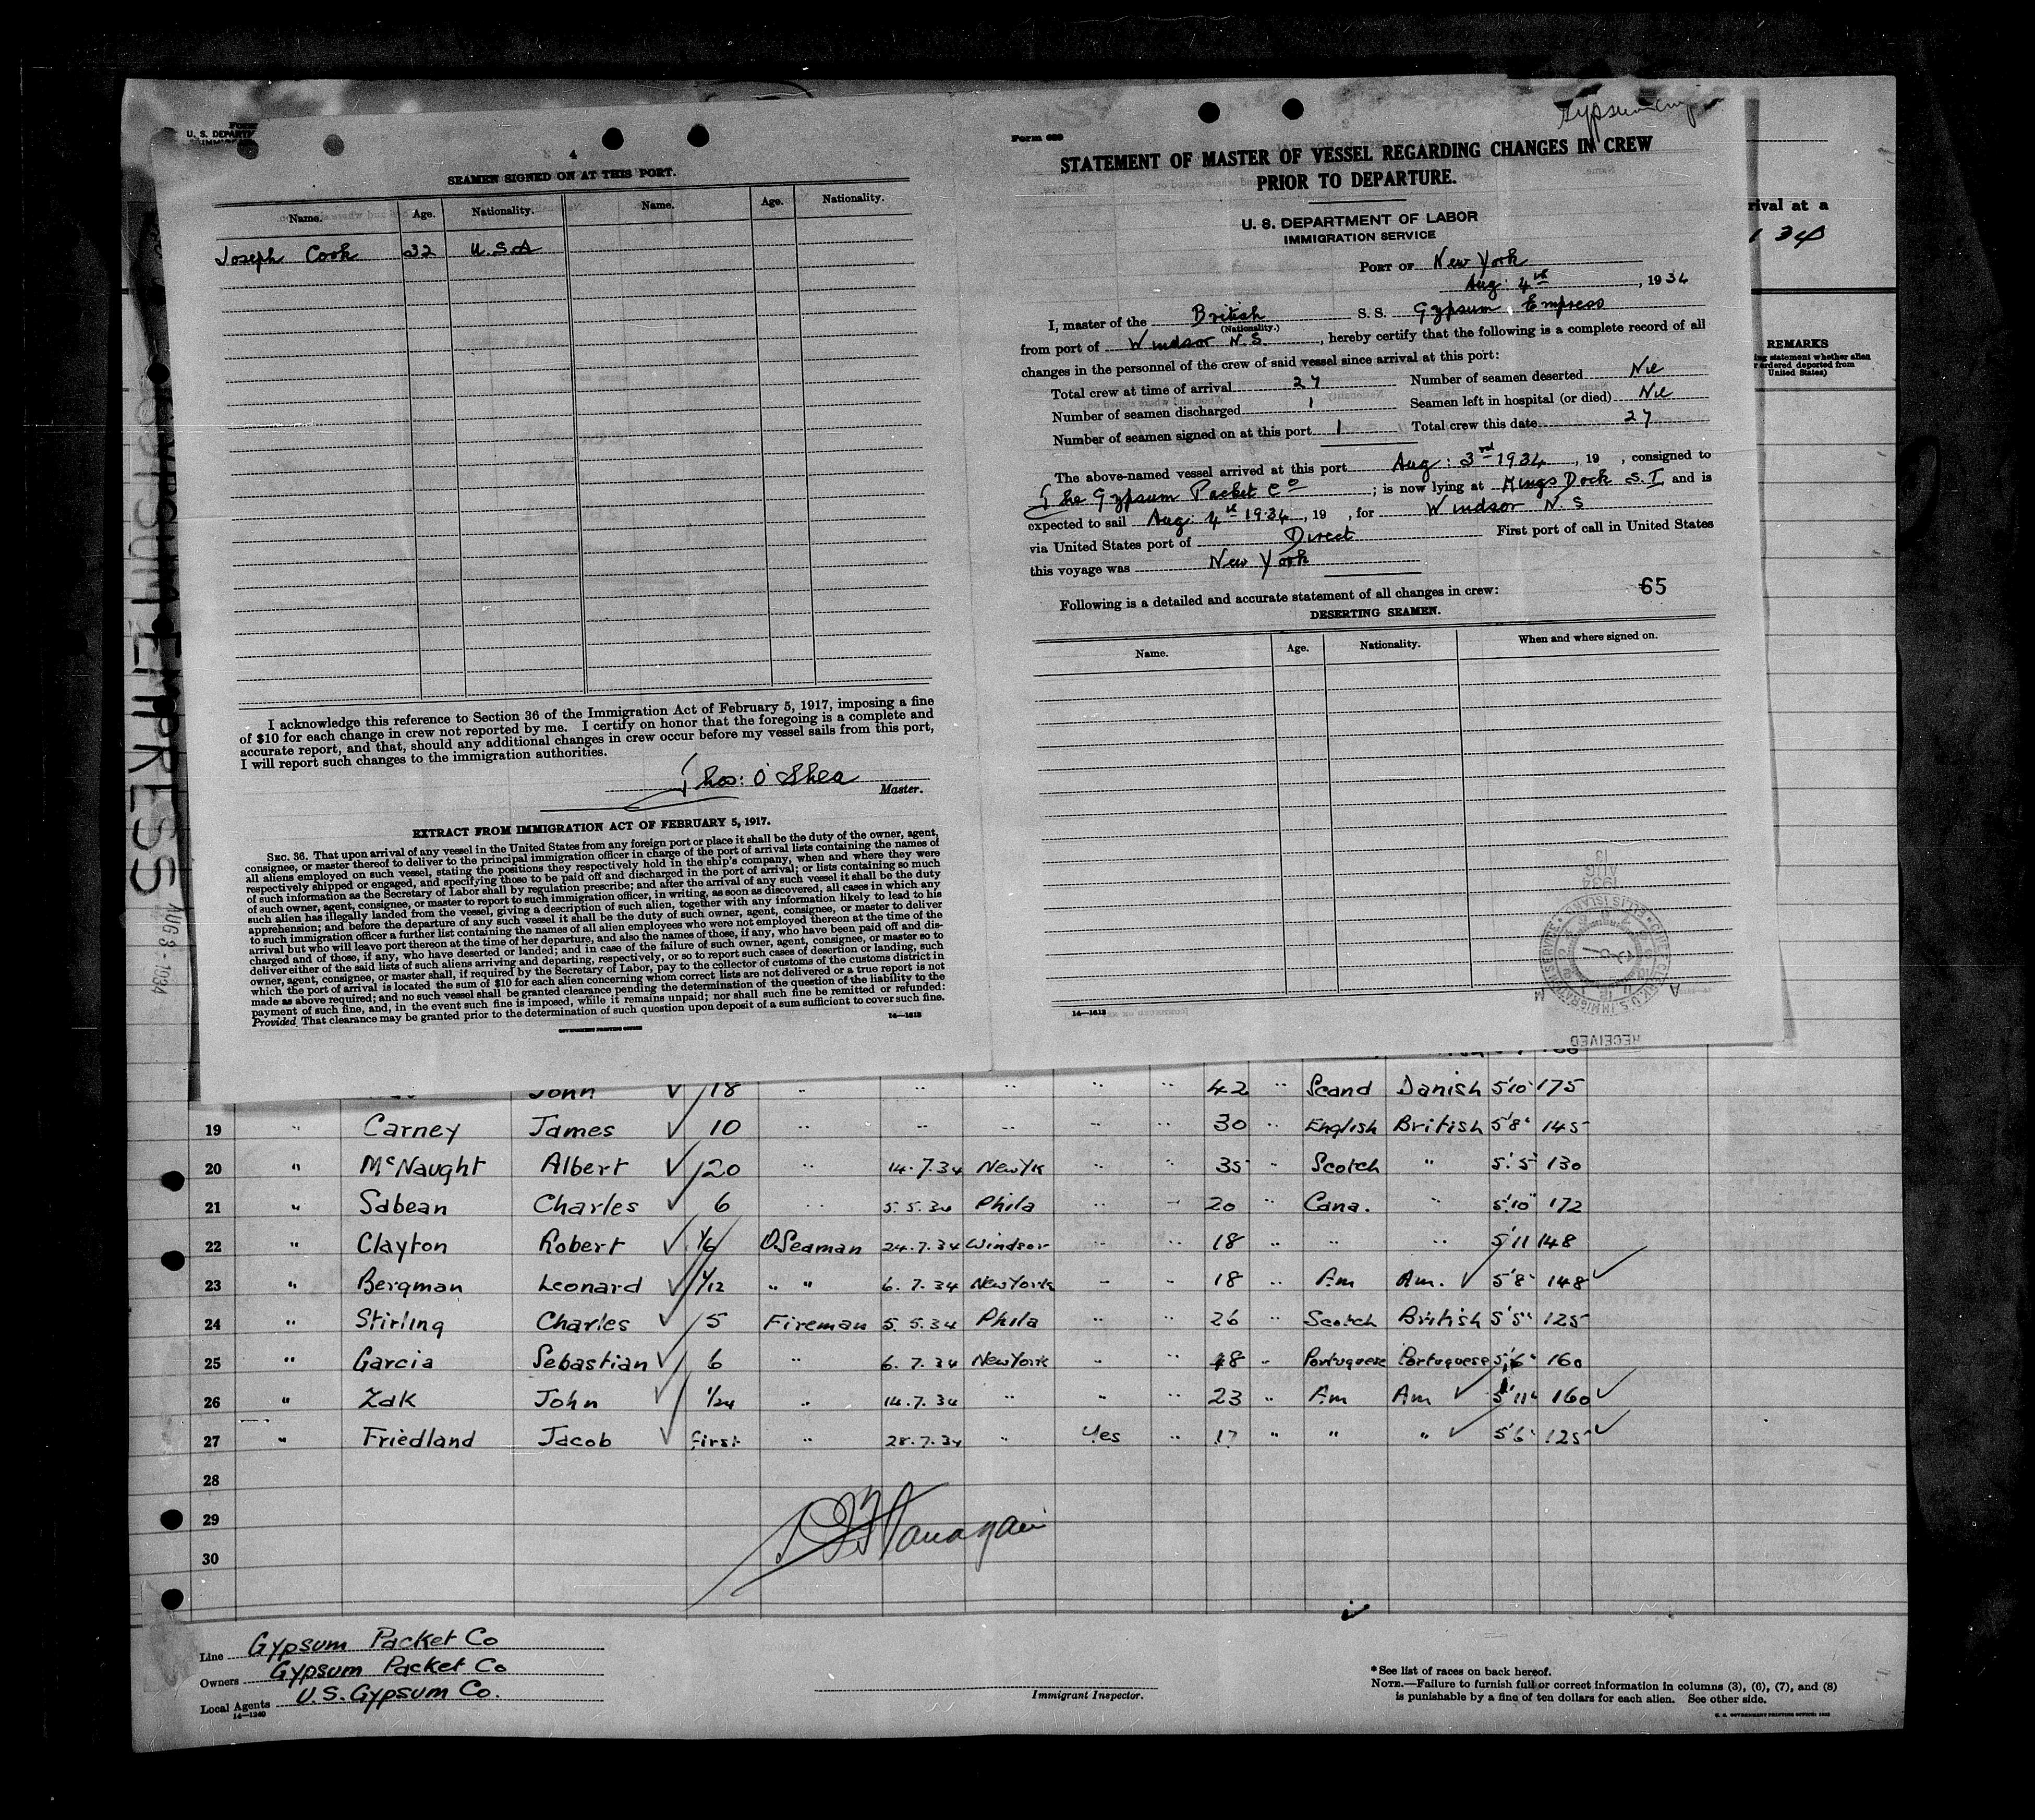 Form
U. S. DEPART
IMMIG
4
SEAMEN SIGNED ON AT THIS PORT.
Name. Age. Nationality. Name. Age. Nationality.
Joseph Cook 32 U.S.A
I acknowledge this reference to Section 36 of the Immigration Act of February 5, 1917, imposing a fine
of $10 for each change in crew not reported by me. I certify on honor that the foregoing is a complete and
accurate report, and that, should any additional changes in crew occur before my vessel sails from this port,
I will report such changes to the immigration authorities.
Thos: O'Shea
Master.
EXTRACT FROM IMMIGRATION ACT OF FEBRUARY 5, 1917.
SEC. 36. That upon arrival of any vessel in the United States from any foreign port or place it shall be the duty of the owner, agent,
consignee, or master thereof to deliver to the principal immigration officer in charge of the port of arrival lists containing the names of
all aliens employed on such vessel, stating the positions they respectively hold in the ship's company, when and where they were
respectively shipped or engaged, and specifying those to be paid off and discharged in the port of arrival; or lists containing so much
of such information as the Secretary of Labor shall by regulation prescribe; and after the arrival of any such vessel it shall be the duty
of such owner, agent, consignee, or master to report to such immigration officer, in writing, as soon as discovered, all cases in which any
such alien has illegally landed from the vessel, giving a description of such alien, together with any information likely to lead to his
apprehension; and before the departure of any such vessel it shall be the duty of such owner, agent, consignee, or master to deliver
to such immigration officer a further list containing the names of all alien employees who were not employed thereon at the time of the
arrival but who will leave port thereon at the time of her departure, and also the names of those, if any, who have been paid off and dis-
charged and of those, if any, who have deserted or landed; and in case of the failure of such owner, agent, consignee, or master so to
deliver either of the said lists of such aliens arriving and departing, respectively, or so to report such cases of desertion or landing, such
owner, agent, consignee, or master shall, if required by the Secretary of Labor, pay to the collector of customs of the customs district in
which the port of arrival is located the sum of $10 for each alien concerning whom correct lists are not delivered or a true report is not
made as above required; and no such vessel shall be granted clearance pending the determination of the question of the liability to the
payment of such fine, and, in the event such fine is imposed, while it remains unpaid; nor shall such fine be remitted or refunded:
Provided, That clearance may be granted prior to the determination of such question upon deposit of a sum sufficient to cover such fine.
GOVERNMENT PRINTING OFFICE
14—1613
Form 689
STATEMENT OF MASTER OF VESSEL REGARDING CHANGES IN CREW
PRIOR TO DEPARTURE.
U. S. DEPARTMENT OF LABOR
IMMIGRATION SERVICE
PORT OF New York
Aug: 4th, 1934
I, master of the British S. S. Gypsum Empress
(Nationality.)
from port of Windsor N.S., hereby certify that the following is a complete record of all
changes in the personnel of the crew of said vessel since arrival at this port:
Total crew at time of arrival 27 Number of seamen deserted Nil
Number of seamen discharged 1 Seamen left in hospital (or died) Nil
Number of seamen signed on at this port 1 Total crew this date 27
The above-named vessel arrived at this port Aug: 3rd 1934, 19 , consigned to
The Gypsum Packet Co; is now lying at Mings Dock S.I. and is
expected to sail Aug: 4th 1934, 19 , for Windsor N.S
via United States port of Direct First port of call in United States
this voyage was New York
Following is a detailed and accurate statement of all changes in crew: 65
DESERTING SEAMEN.
Name. Age. Nationality. When and where signed on.
14—1613
RECEIVED
rival at a
1 34
REMARKS
ing statement whether alien
r ordered deported from
United States)
GYPSUM EMPRESS
AUG 3 - 1934
John 18 " " " " " 42 " Scand Danish 5'10" 175
19 " Carney James 10 " " " " " 30 " English British 5'8" 145
20 " McNaught Albert 20 " 14.7.34 NewYk " " 35 " Scotch " 5'5" 130
21 " Sabean Charles 6 " 5.5.34 Phila " " 20 " Cana. " 5'10" 172
22 " Clayton Robert 1/6 O.Seaman 24.7.34 Windsor " " 18 " " " 5'11 148
23 " Bergman Leonard 1/12 " " 6.7.34 New York " " 18 " Am Am. 5'8" 148
24 " Stirling Charles 5 Fireman 5.5.34 Phila " " 26 " Scotch British 5'5" 125
25 " Garcia Sebastian 6 " 6.7.34 New York " " 48 " Portuguese Portuguese 5'6" 160
26 " Zak John 1/24 " 14.7.34 " " " 23 " Am Am 5'11" 160
27 " Friedland Jacob first " 28.7.34 " Yes " 17 " " " 5'6" 125
28
29
30
Line Gypsum Packet Co
Owners Gypsum Packet Co
Local Agents U.S. Gypsum Co.
14—1240
Immigrant Inspector.
*See list of races on back hereof.
NOTE.—Failure to furnish full or correct information in columns (3), (6), (7), and (8)
is punishable by a fine of ten dollars for each alien. See other side.
U. S. GOVERNMENT PRINTING OFFICE